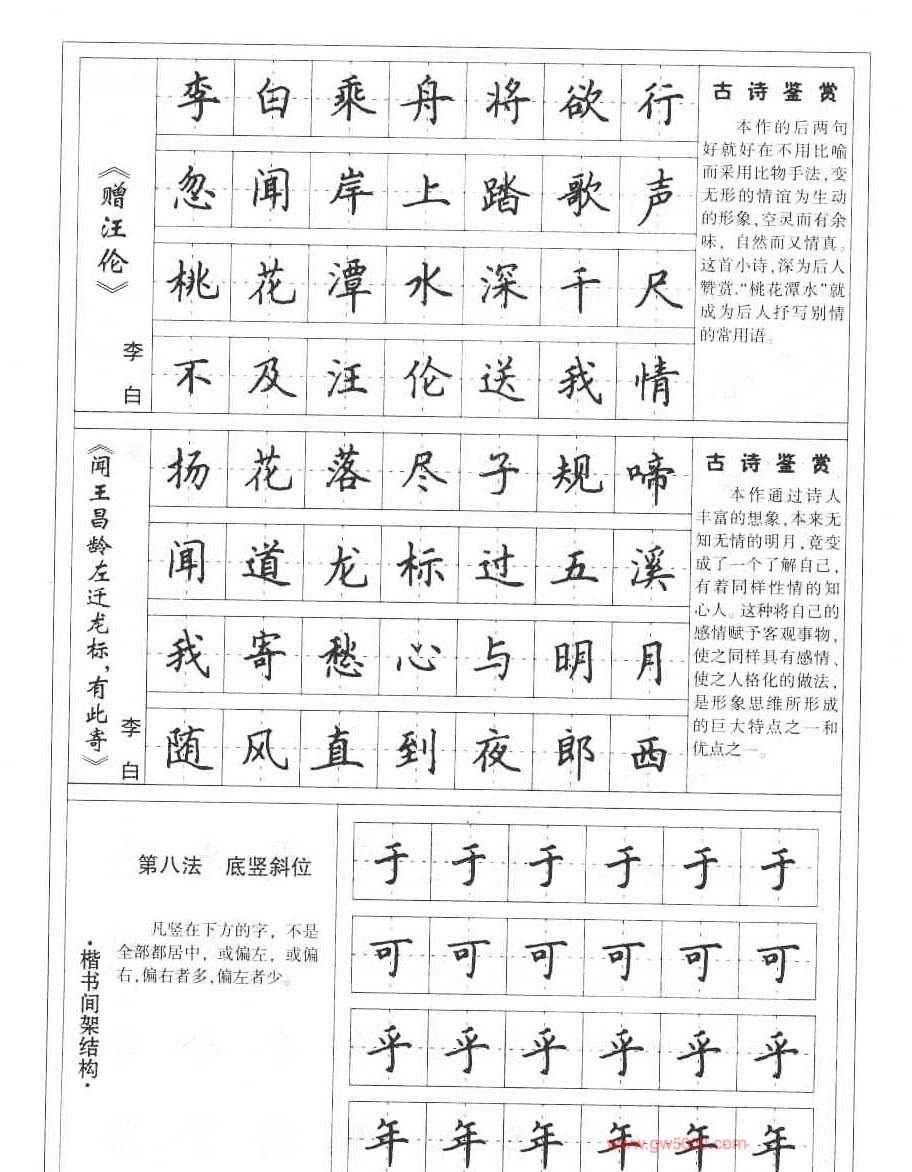 《赠汪伦》
李白
李白乘舟将欲行
忽闻岸上踏歌声
桃花潭水深千尺
不及汪伦送我情
古诗鉴赏
本作的后两句
好就好在不用比喻
而采用比物手法,变
无形的情谊为生动
的形象,空灵而有余
味，自然而又情真。
这首小诗,深为后人
赞赏.“桃花潭水”就
成为后人抒写别情
的常用语。
《闻王昌龄左迁龙标,有此寄》
李白
扬花落尽子规啼
闻道龙标过五溪
我寄愁心与明月
随风直到夜郎西
古诗鉴赏
本作通过诗人
丰富的想象,本来无
知无情的明月,竟变
成了一个了解自己,
有着同样性情的知
心人。这种将自己的
感情赋予客观事物,
使之同样具有感情、
使之人格化的做法,
是形象思维所形成
的巨大特点之一和
优点之一。
·楷书间架结构·
第八法　底竖斜位
凡竖在下方的字，不是
全部都居中，或偏左，或偏
右,偏右者多,偏左者少。
于于于于于于
可可可可可可
乎乎乎乎乎乎
年年年年年年